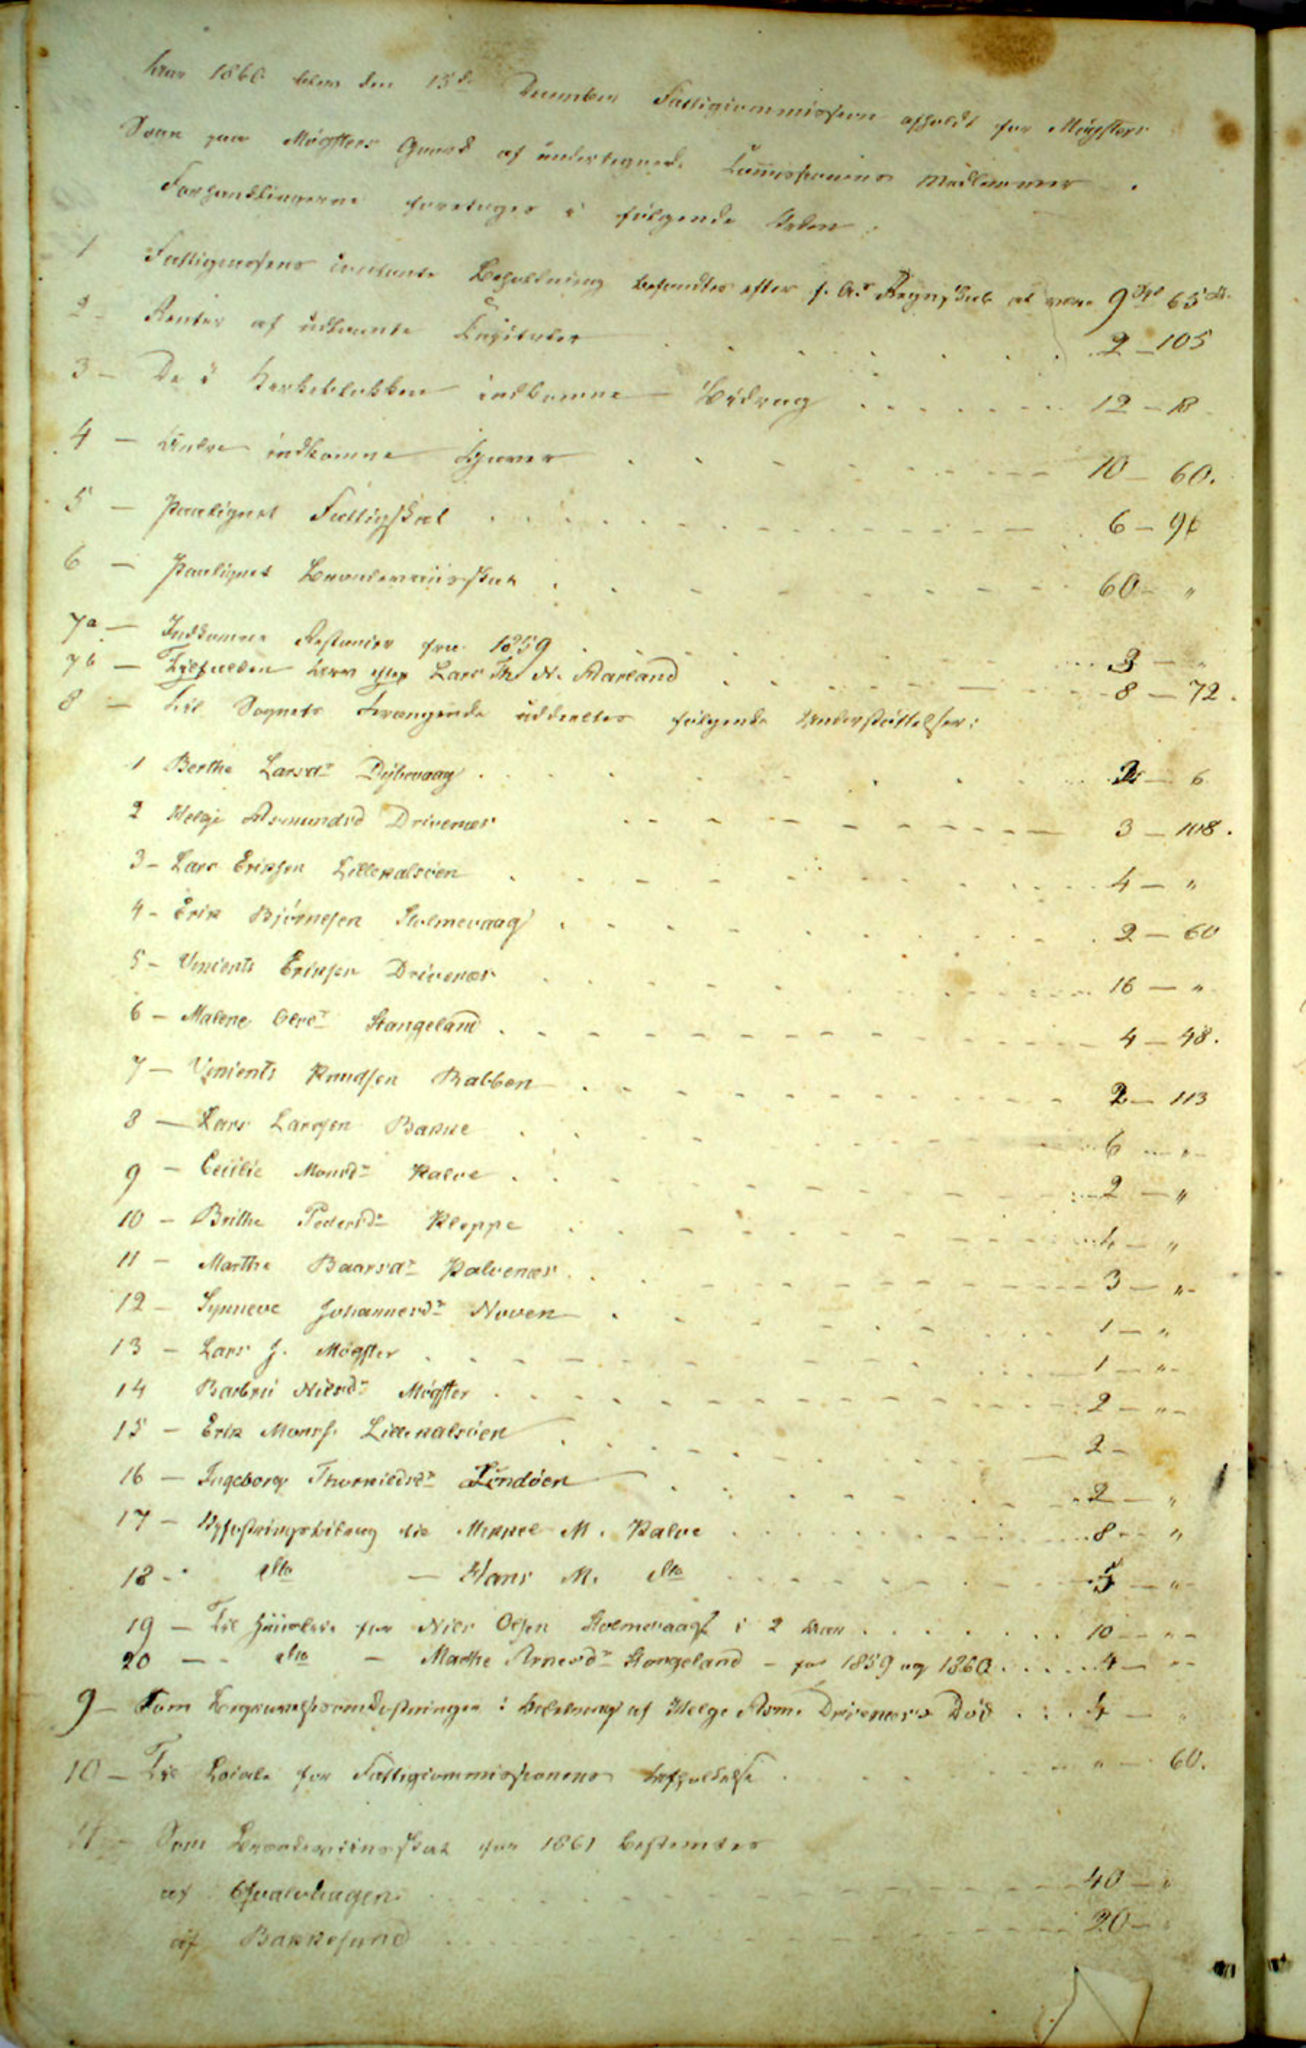 Aar 1860 blev den 15de December Fattigcommission afholdt for Møgsters
Sogn paa Møgster Gaard af undertegnede Commissionens Medlemmer.
Forhandlingerne foretoges i følgende Orden:
1 Fattigcassens contante Beholdning befandtes efter f. A.s Regnskab at være 9 Spd 65 s.
2 - Renter af udlaante Capitaler 2 - 105
3 - De i Kirkeblokken indkomne Bidrag 12 - 18
4 - Andre indkomne Gaver 10 - 60.
5 - Paalignet Fattigskat 6 - 96
6 - Paalignet Brændeviinsskat 60 - "
7a - Indkomne Restancer fra 1859 3 - "
7b - Tilfalden Arv efter Lars Th. N. Aarland 8 - 72.
8 - Til Sognets Trængende uddeeltes følgende Understøttelser:
1 Berthe Larsdr Dybevaag 2 - 6
2 Helge Asmundsd Drivenes 3 - 108.
3 - Lars Eriksen Lillekalsøen 4 - "
4 - Erik Bjørnesen Stolmevaag 2 - 60
5 - Vincents Eriksen Drivenes 16 - "
6 - Malene Olsdr Stangeland 4 - 48.
7 - Vincents Knudsen Rabben 2 - 113
8 - Lars Larssen Bakke 6 - "
9 - Cecilie Monsdr Kalve 2 - "
10 - Brithe Pedersdr Kleppe 4 - "
11 - Marthe Baarsdr Kalvenes 3 - "
12 - Synneve Johannesdr Noven 1 - "
13 - Lars J. Møgster 1 - "
14 Barbru Nilsdr Møgster 2 - "
15 - Erik Monss. Lillekalsøen 2 -
16 - Ingeborg Lindøen 2 - "
17 - Opfostringsbidrag til Mikkel M. Kalve 8 - "
18 - dto - Hans M. dto 5 - "
19 - Til Huusleie for Nils Olsen Stolmevaag i 2 Aar 10 - "
20 - dto - Marthe Arnesdr Stangeland - for 1859 og 1860 4 - "
9 - Som Begravelsesomkostninger i Anledning af Helge Asm. Drivenes's Død 4 - "
10 - Til Locale for Fattigcommissionens Afholdelse " - 60.
11 - Som Brændeviinsskat for 1861 bestemtes
af Qvalvhagen 40 - "
af Bakkesund 20 - "